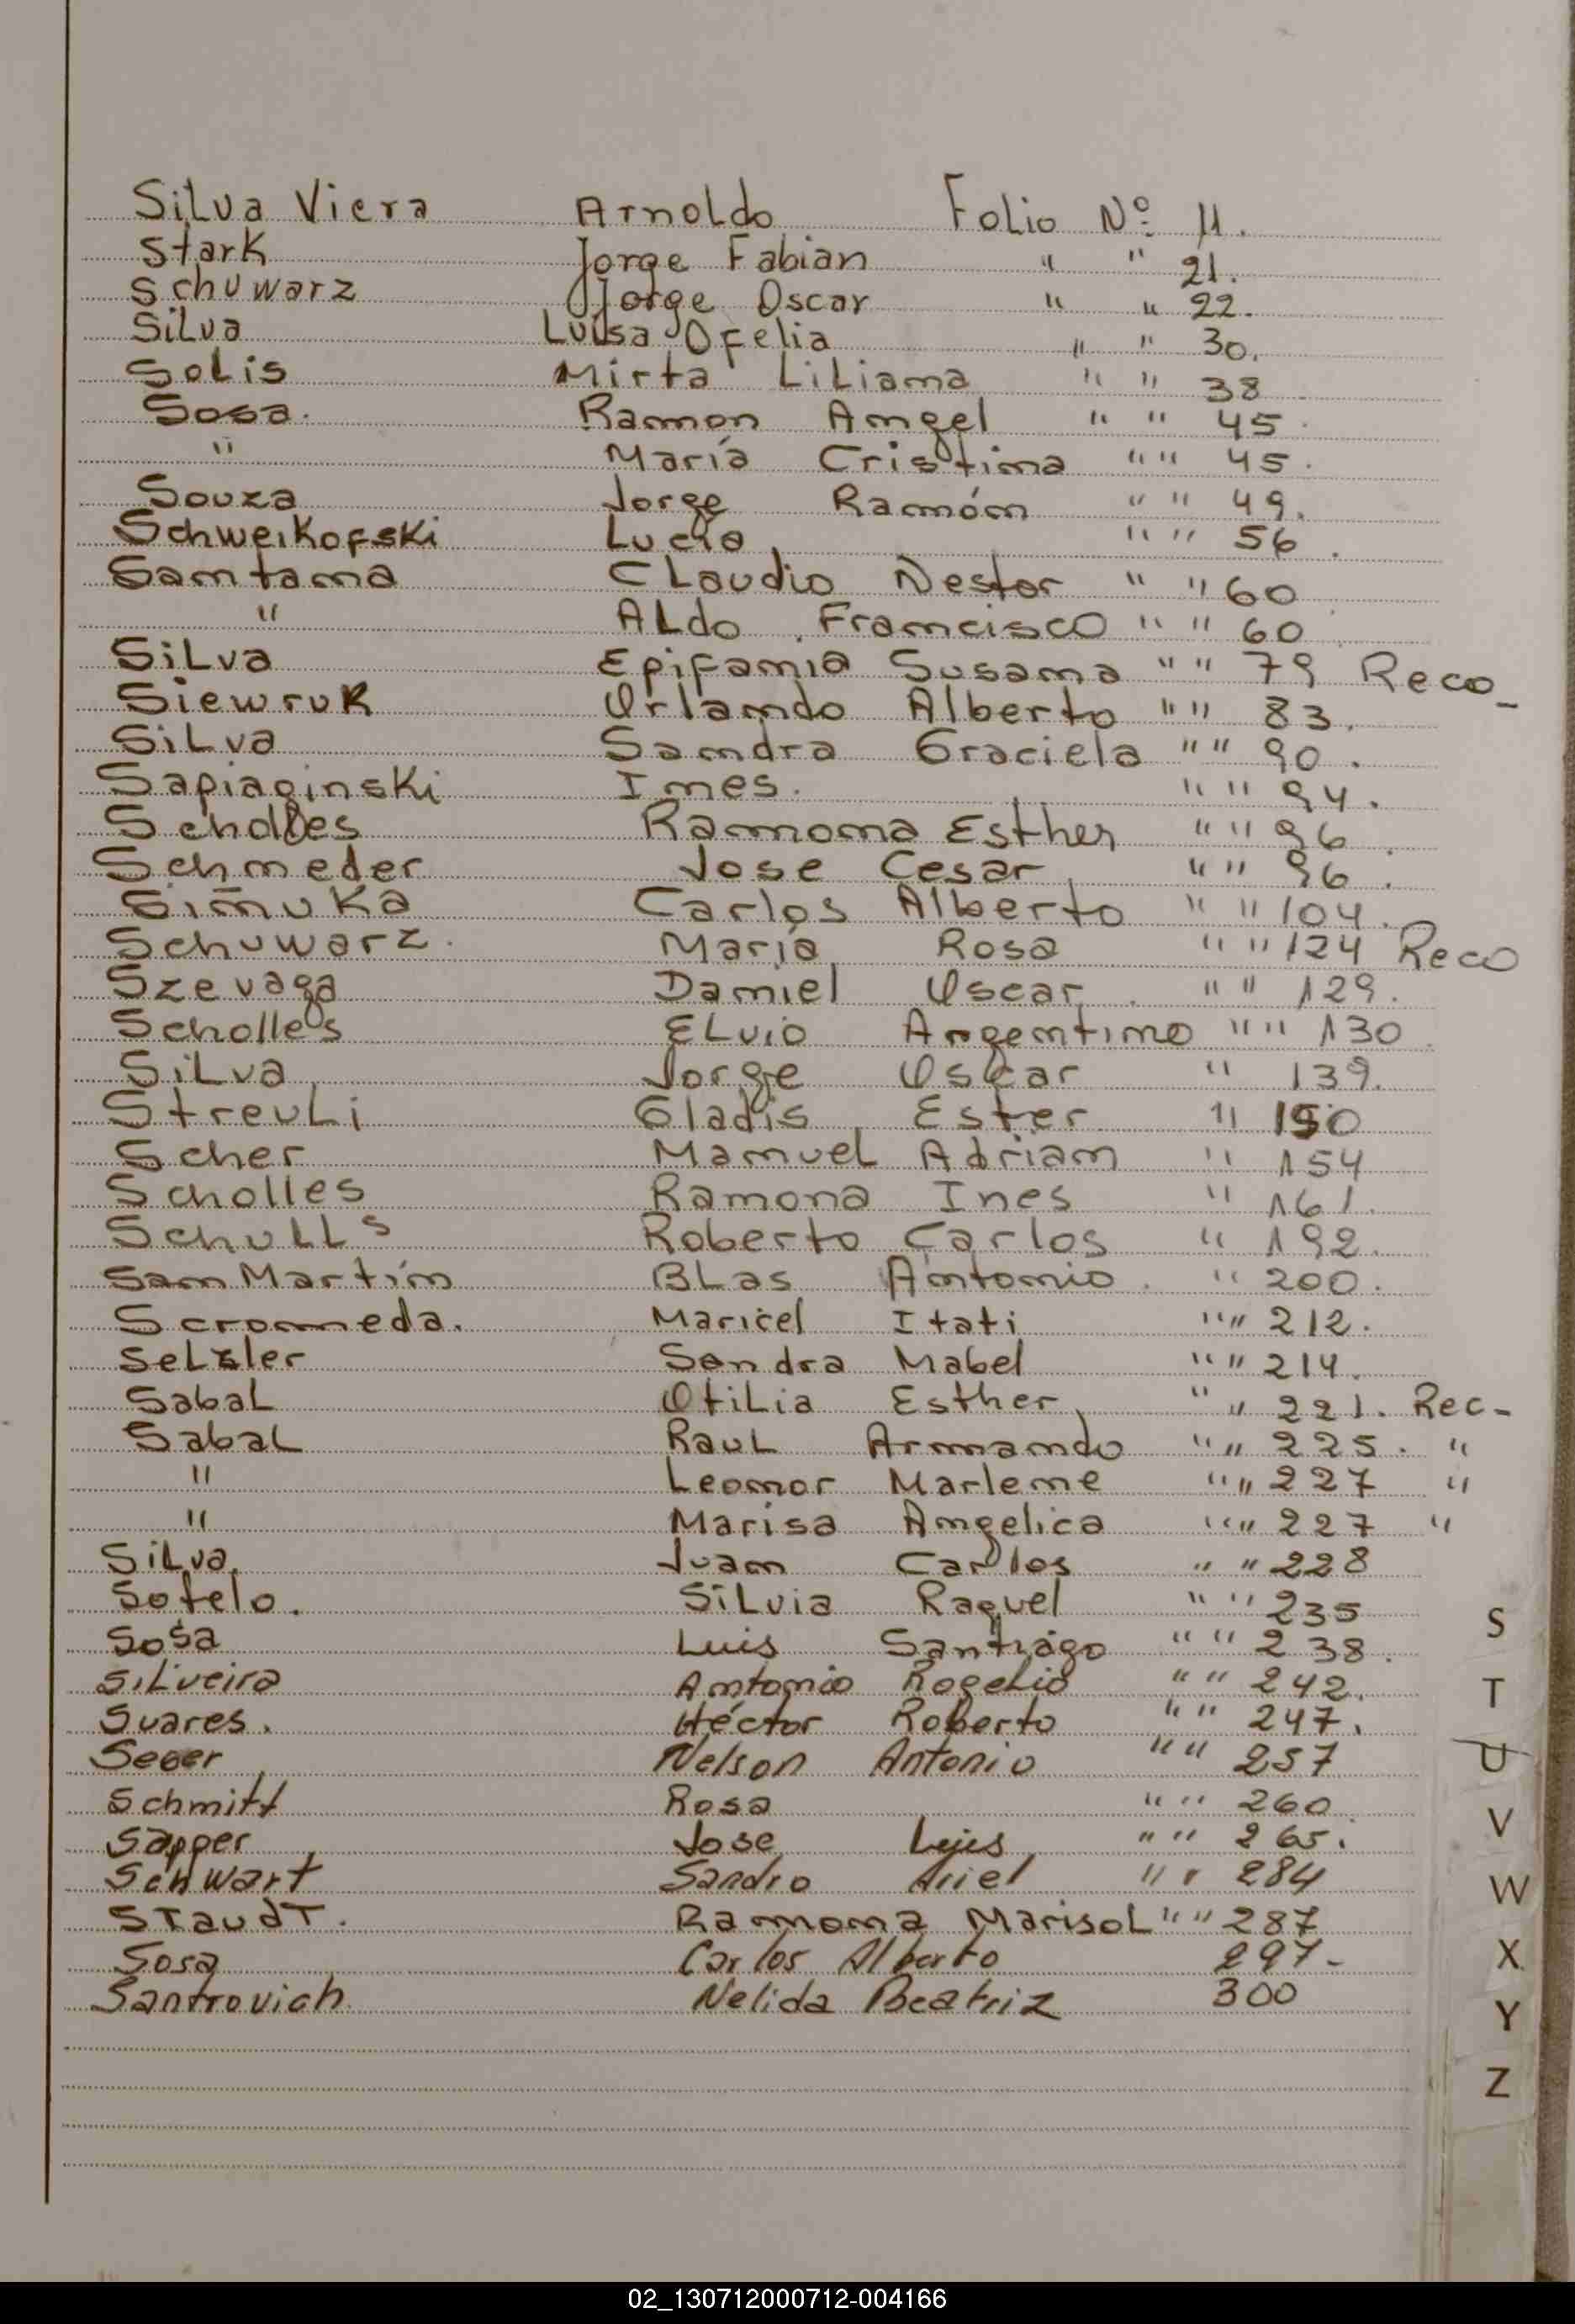 Silva Viera Arnoldo Folio Nº 11.
Stark Jorge Fabian " " 21.
Schuwarz Jorge Oscar " " 22.
Silva Luisa Ofelia " " 30.
Solis Mirta Liliana " " 38
Sosa. Ramon Angel " " 45.
" María Cristina " " 45.
Souza Jorge Ramón " " 49.
Schweikofski Lucia " " 56.
Santana Claudio Nestor " " 60
" Aldo Francisco " " 60
Silva Epifania Susana " " 79 Reco-
Siewruk Orlando Alberto " " 83.
Silva Sandra Graciela " " 90.
Sapiaginski Ines. " " 94.
Scholles Ramona Esther " " 96.
Schmeder Jose Cesar " " 96.
Simuka Carlos Alberto " " 104.
Schuwarz. María Rosa " " 124 Reco
Szevaga Daniel Oscar " " 129.
Scholles Elvio Argentino " " 130
Silva Jorge Oscar " 139.
Streuli Gladis Ester " 150
Scher Manuel Adrian " 154
Scholles Ramona Ines " 161.
Schulls Roberto Carlos " 192.
San Martín Blas Antonio. " 200.
Scromeda. Maricel Itati " " 212.
Selzler Sandra Mabel " " 214.
Sabal Otilia Esther " " 221. Rec-
Sabal Raul Armando " " 225. "
" Leonor Marlene " " 227 "
" Marisa Angelica " " 227 "
Silva Juan Carlos " " 228
Sotelo. Silvia Raquel " " 235
Sosa Luis Santiago " " 238.
Silveira Antonio Rogelio " " 242.
Suares. Héctor Roberto " " 247.
Seber Nelson Antonio " " 257
Schmitt Rosa " " 260
Sapper Jose Luis " " 265.
Schwart Sandro Ariel " " 284
Staudt. Ramona Marisol " " 287
Sosa Carlos Alberto 297-
Santrovich Nelida Beatriz 300
S
T
U
V
W
X
Y
Z
02_130712000712-004166